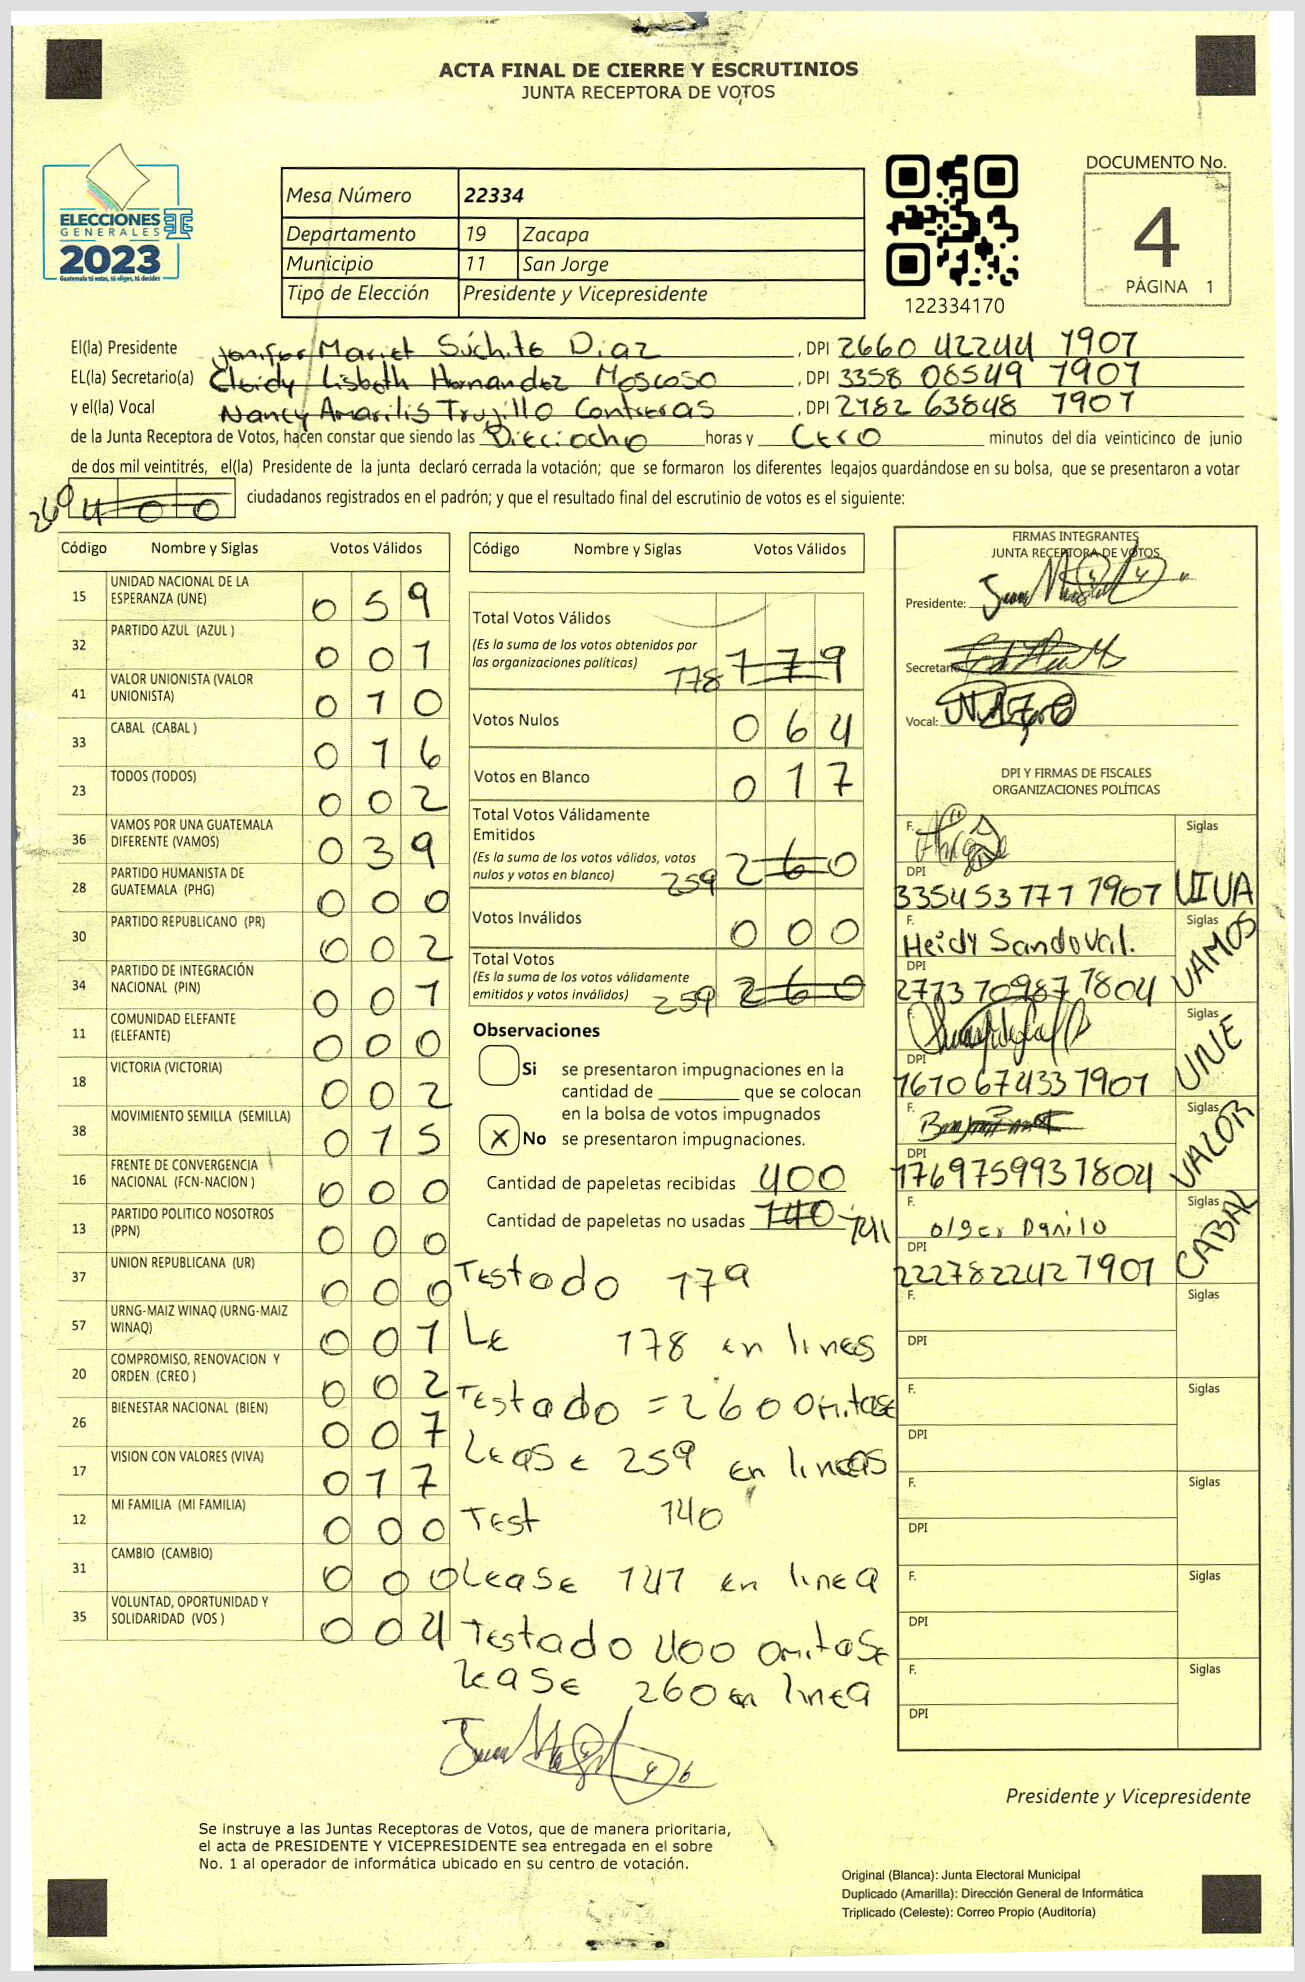 ACTA FINAL DE CIERRE Y ESCRUTINIOS
JUNTA RECEPTORA DE VOTOS
ELECCIONES
GENERALES
2023
Guatemala tú votas, tú eliges, tú decides
Mesa Número 22334
Departamento 19 Zacapa
Municipio 11 San Jorge
Tipo de Elección Presidente y Vicepresidente
122334170
DOCUMENTO No.
4
PÁGINA 1
El(la) Presidente Jenifer Mariet Súchite Diaz, DPI 2660 42244 1907
EL(la) Secretario(a) Cleidy Lisbeth Hernandez Moscoso, DPI 3358 06549 1907
y el(la) Vocal Nancy Amarilis Trujillo Contreras, DPI 2782 63848 1907
de la Junta Receptora de Votos, hacen constar que siendo las Dieciocho horas y Cero minutos del día veinticinco de junio
de dos mil veintitrés, el(la) Presidente de la junta declaró cerrada la votación; que se formaron los diferentes legajos guardándose en su bolsa, que se presentaron a votar
400 ciudadanos registrados en el padrón; y que el resultado final del escrutinio de votos es el siguiente:
Código Nombre y Siglas Votos Válidos
15 UNIDAD NACIONAL DE LA ESPERANZA (UNE) 059
32 PARTIDO AZUL (AZUL ) 001
41 VALOR UNIONISTA (VALOR UNIONISTA) 010
33 CABAL (CABAL ) 016
23 TODOS (TODOS) 002
36 VAMOS POR UNA GUATEMALA DIFERENTE (VAMOS) 039
28 PARTIDO HUMANISTA DE GUATEMALA (PHG) 000
30 PARTIDO REPUBLICANO (PR) 002
34 PARTIDO DE INTEGRACIÓN NACIONAL (PIN) 001
11 COMUNIDAD ELEFANTE (ELEFANTE) 000
18 VICTORIA (VICTORIA) 002
38 MOVIMIENTO SEMILLA (SEMILLA) 015
16 FRENTE DE CONVERGENCIA NACIONAL (FCN-NACION ) 000
13 PARTIDO POLITICO NOSOTROS (PPN) 000
37 UNION REPUBLICANA (UR) 000
57 URNG-MAIZ WINAQ (URNG-MAIZ WINAQ) 001
20 COMPROMISO, RENOVACION Y ORDEN (CREO ) 002
26 BIENESTAR NACIONAL (BIEN) 007
17 VISION CON VALORES (VIVA) 017
12 MI FAMILIA (MI FAMILIA) 000
31 CAMBIO (CAMBIO) 000
35 VOLUNTAD, OPORTUNIDAD Y SOLIDARIDAD (VOS ) 004
Código Nombre y Siglas Votos Válidos
Total Votos Válidos
(Es la suma de los votos obtenidos por
las organizaciones políticas) 178 179
Votos Nulos 064
Votos en Blanco 017
Total Votos Válidamente
Emitidos
(Es la suma de los votos válidos, votos
nulos y votos en blanco) 259 260
Votos Inválidos 000
Total Votos
(Es la suma de los votos válidamente
emitidos y votos inválidos) 259 260
Observaciones
Si se presentaron impugnaciones en la
cantidad de ________ que se colocan
en la bolsa de votos impugnados
X No se presentaron impugnaciones.
Cantidad de papeletas recibidas 400
Cantidad de papeletas no usadas 140 141
Testado 179
Le 178 en lineas
Testado = 260 Omitase
Lease 259 en lineas
Test 140
Lease 141 en linea
Testado 400 omitase
lease 260 en linea
FIRMAS INTEGRANTES
JUNTA RECEPTORA DE VOTOS
Presidente:
Secretario:
Vocal:
DPI Y FIRMAS DE FISCALES
ORGANIZACIONES POLÍTICAS
F. Siglas
DPI
3354 53777 1907 VIVA
F. Heidy Sandoval. Siglas
DPI
2773 70987 1804 VAMOS
F. Siglas
DPI
1610 67433 1907 UNE
F. Siglas
DPI
1769759931804 VALOR
F. olger Danilo Siglas
DPI
2227822421901 CABAL
F. Siglas
DPI
F. Siglas
DPI
F. Siglas
DPI
F. Siglas
DPI
F. Siglas
DPI
Presidente y Vicepresidente
Se instruye a las Juntas Receptoras de Votos, que de manera prioritaria,
el acta de PRESIDENTE Y VICEPRESIDENTE sea entregada en el sobre
No. 1 al operador de informática ubicado en su centro de votación.
Original (Blanca): Junta Electoral Municipal
Duplicado (Amarilla): Dirección General de Informática
Triplicado (Celeste): Correo Propio (Auditoría)